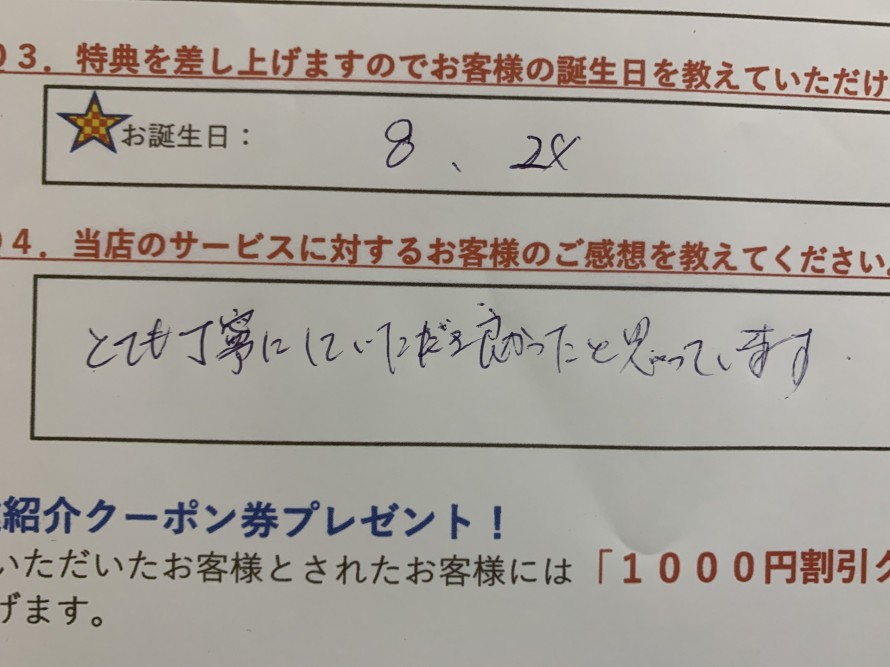 03. 特典を差し上げますのでお客様の誕生日を教えていただけ
お誕生日：
8、24
04. 当店のサービスに対するお客様のご感想を教えてください。
とても丁寧にしていただき良かったと思っています.
紹介クーポン券プレゼント！
いただいたお客様とされたお客様には「１０００円割引ク
げます。